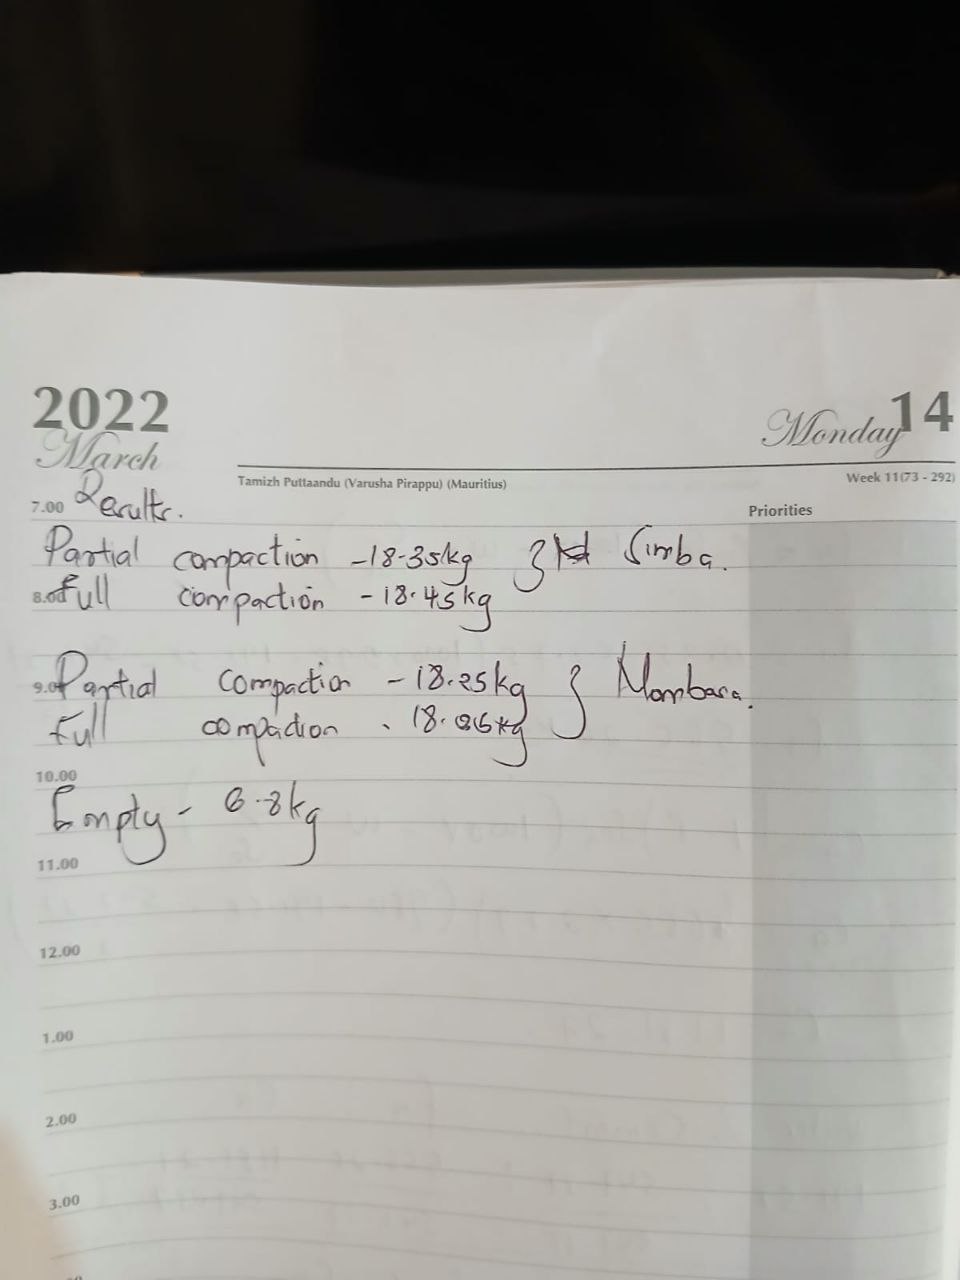 2022
March
Monday 14
Tamizh Puttaandu (Varusha Pirappu) (Mauritius)
Week 11(73 - 292)
7.00 Results.
Priorities
Partial compaction - 18.35kg } Simba.
8.00 Full compaction - 18.45kg
9.00 Partial compaction - 18.25kg } Mombasa.
Full compaction - kg
10.00
Empty - 6.8kg
11.00
12.00
1.00
2.00
3.00